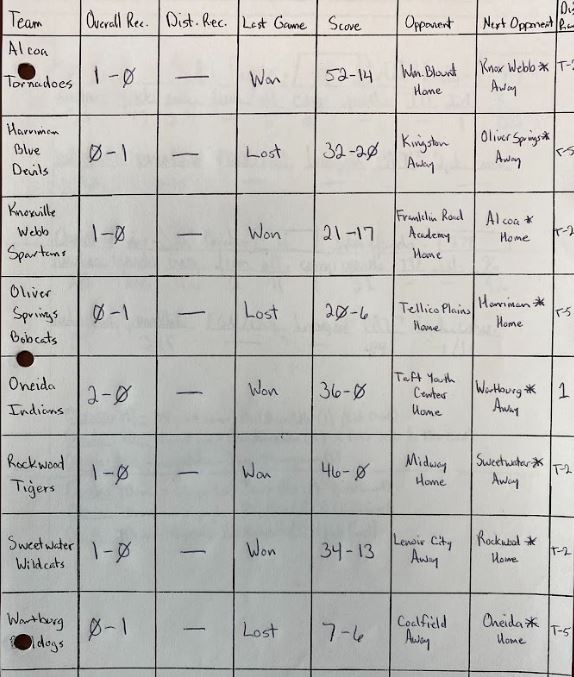 Team Overall Rec. Dist. Rec. Last Game Score Opponent Next Opponent
Alcoa
Tornadoes 1-0 — Won 52-14 Wm. Blount Home Knox Webb* Away T-2
Harriman
Blue
Devils 0-1 — Lost 32-20 Kingston Away Oliver Springs* Away T-5
Knoxville
Webb
Spartans 1-0 — Won 21-17 Franklin Road Academy Home Alcoa* Home T-2
Oliver
Springs
Bobcats 0-1 — Lost 20-6 Tellico Plains Home Harriman* Home T-5
Oneida
Indians 2-0 — Won 36-0 Taft Youth Center Home Wartburg* Away 1
Rockwood
Tigers 1-0 — Won 46-0 Midway Home Sweetwater* Away T-2
Sweetwater
Wildcats 1-0 — Won 34-13 Lenoir City Away Rockwood* Home T-2
Wartburg
dogs 0-1 — Lost 7-6 Coalfield Away Oneida* Home T-5